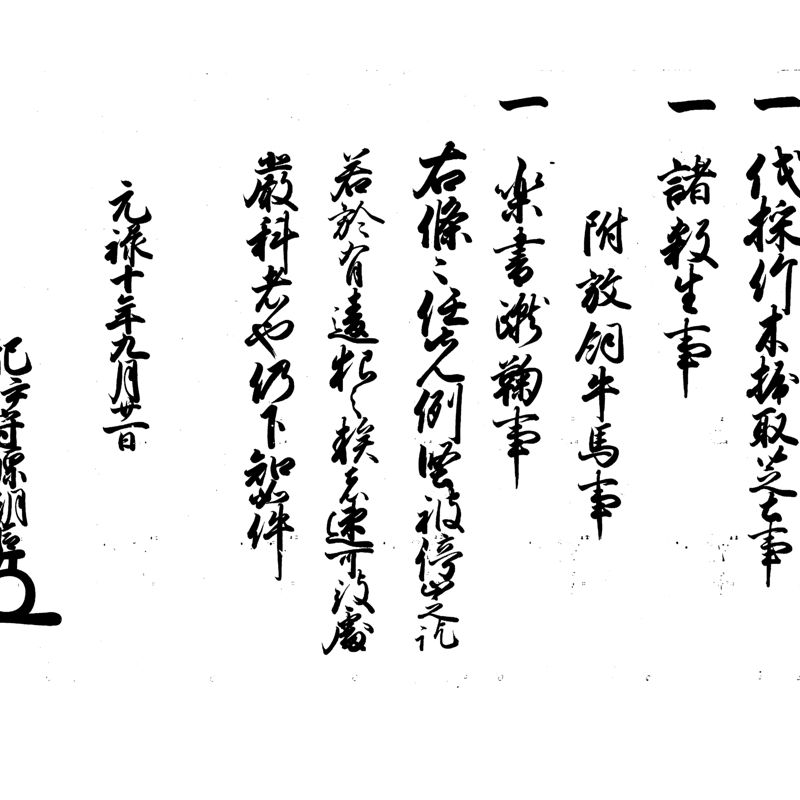 一 伐採竹木掃取芝土事
一 諸殺生事
附放飼牛馬事
一 楽書蹴鞠事
右條々任先例堅被停止之訖
若於有違犯之族者速可被處
嚴科者也仍下知如件
元禄十年九月廿一日
紀伊守源朝臣